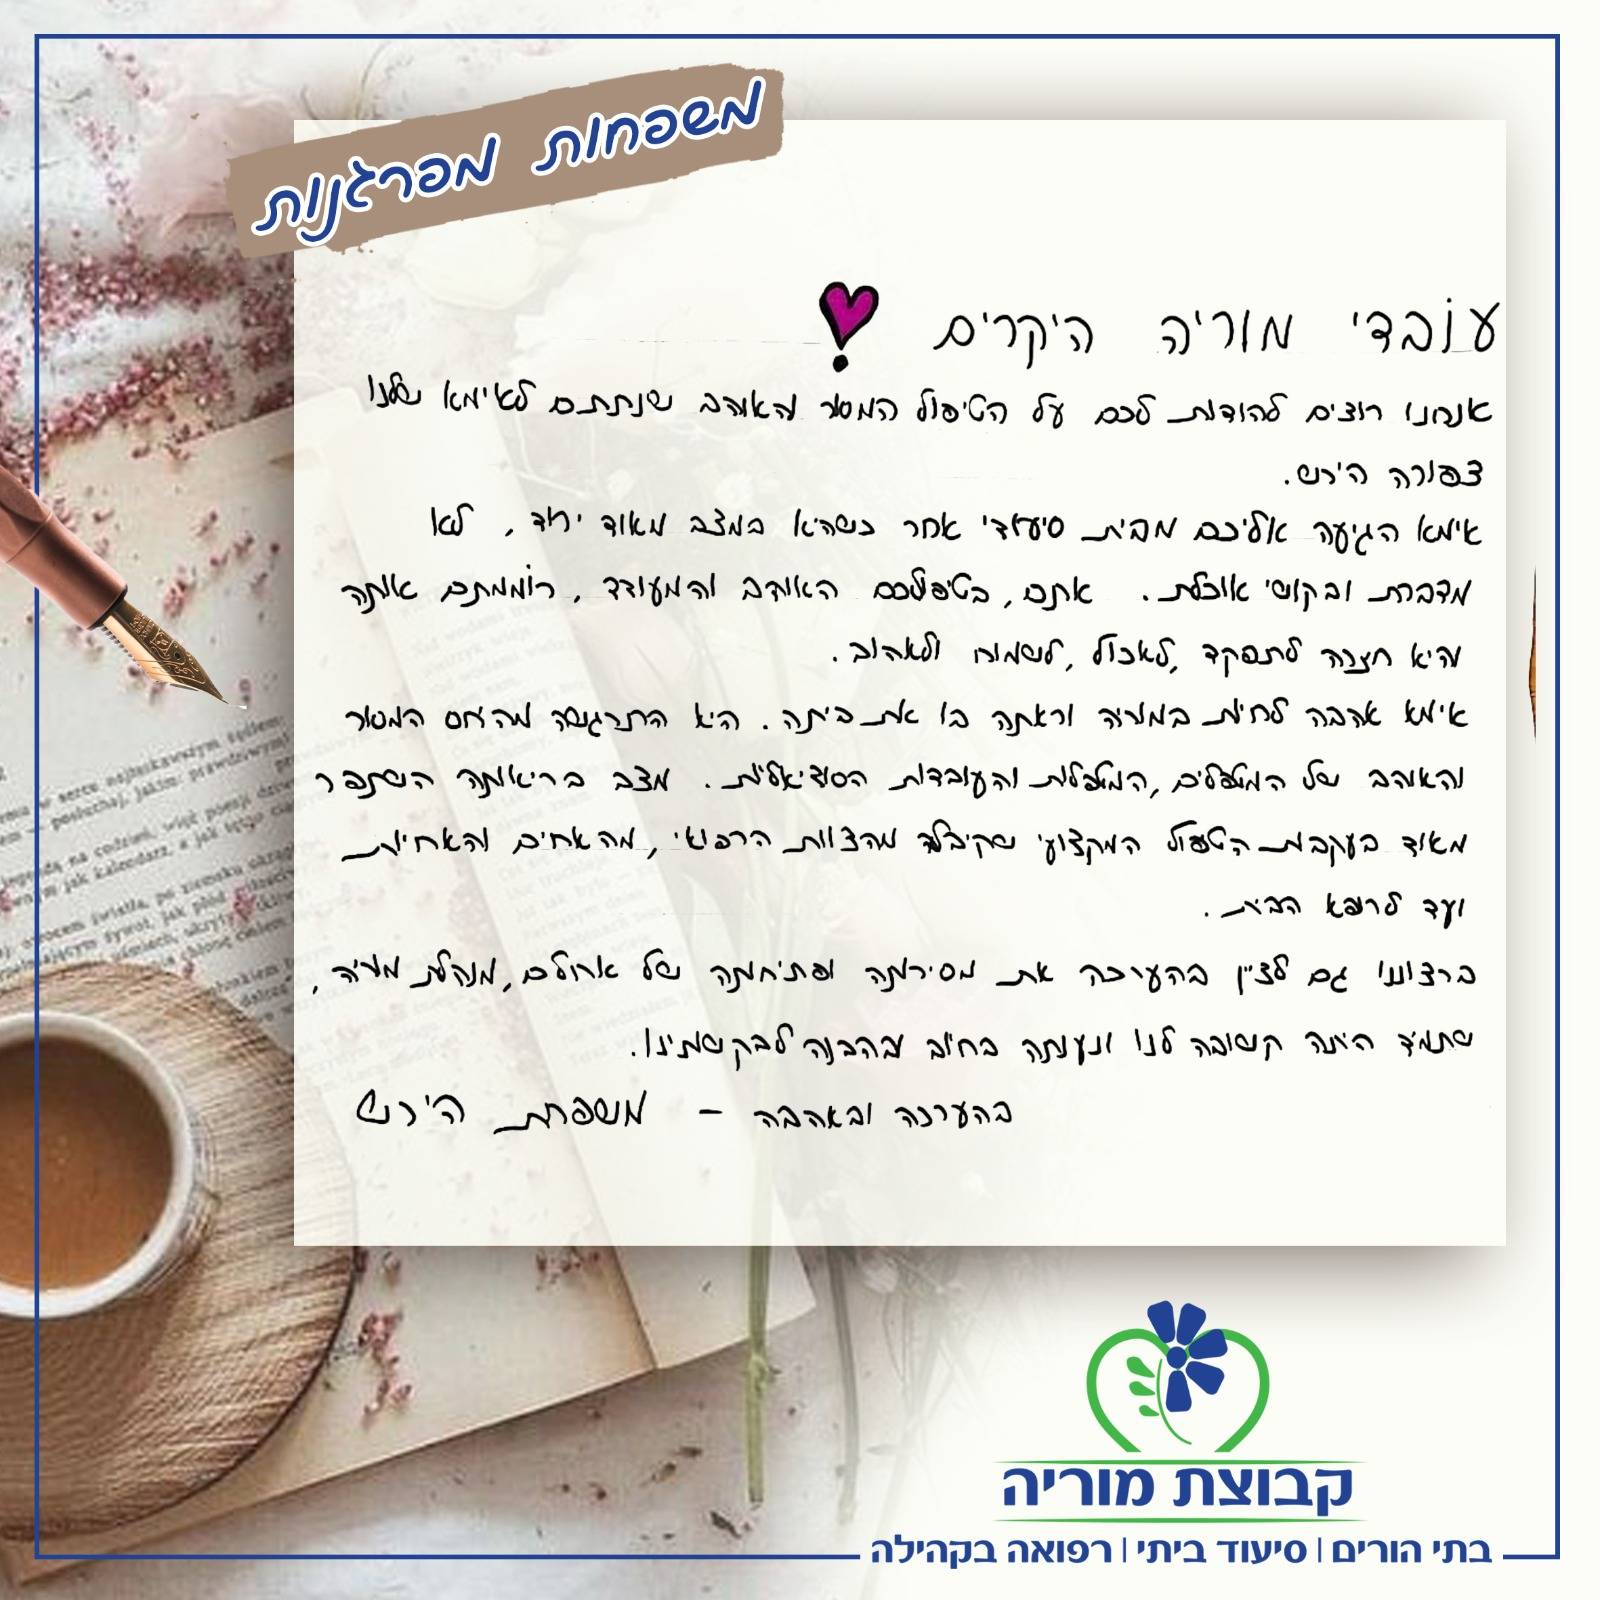 משפחות מפרגנות
עובדי מוריה היקרים
אנחנו רוצים להודות לכם על הטיפול המסור והאוהב שנתתם לאימא שלנו
צפורה הירש.
אימא הגיעה אליכם מבית סיעודי אחר כשהיא במצב מאוד ירוד, לא
מדברת ובקושי אוכלת. אתם, בטיפולכם האוהב והמעודד, רוממתם אותה
והיא חזרה לתפקד, לאכול, לשמוח ולאהוב.
אימא אהבה לחיות במוריה וראתה בו את ביתה. היא התרגשה מהיחס המסור
והאוהב של המטפלים, המטפלות והעובדות הסוציאליות. מצב בריאותה השתפר
מאוד בעקבות הטיפול המקצועי שקיבלה מהצוות הרפואי, מהאחים והאחיות
ועד לרופא הבית.
ברצוננו גם לציין בהערכה את מסירותה ופתיחותה של אהולם, מנהלת מוריה,
שתמיד היתה קשובה לנו ונענתה בחיוב ובהבנה לבקשותינו.
בהערכה ובאהבה – משפחת הירש
קבוצת מוריה
בתי הורים | סיעוד ביתי | רפואה בקהילה